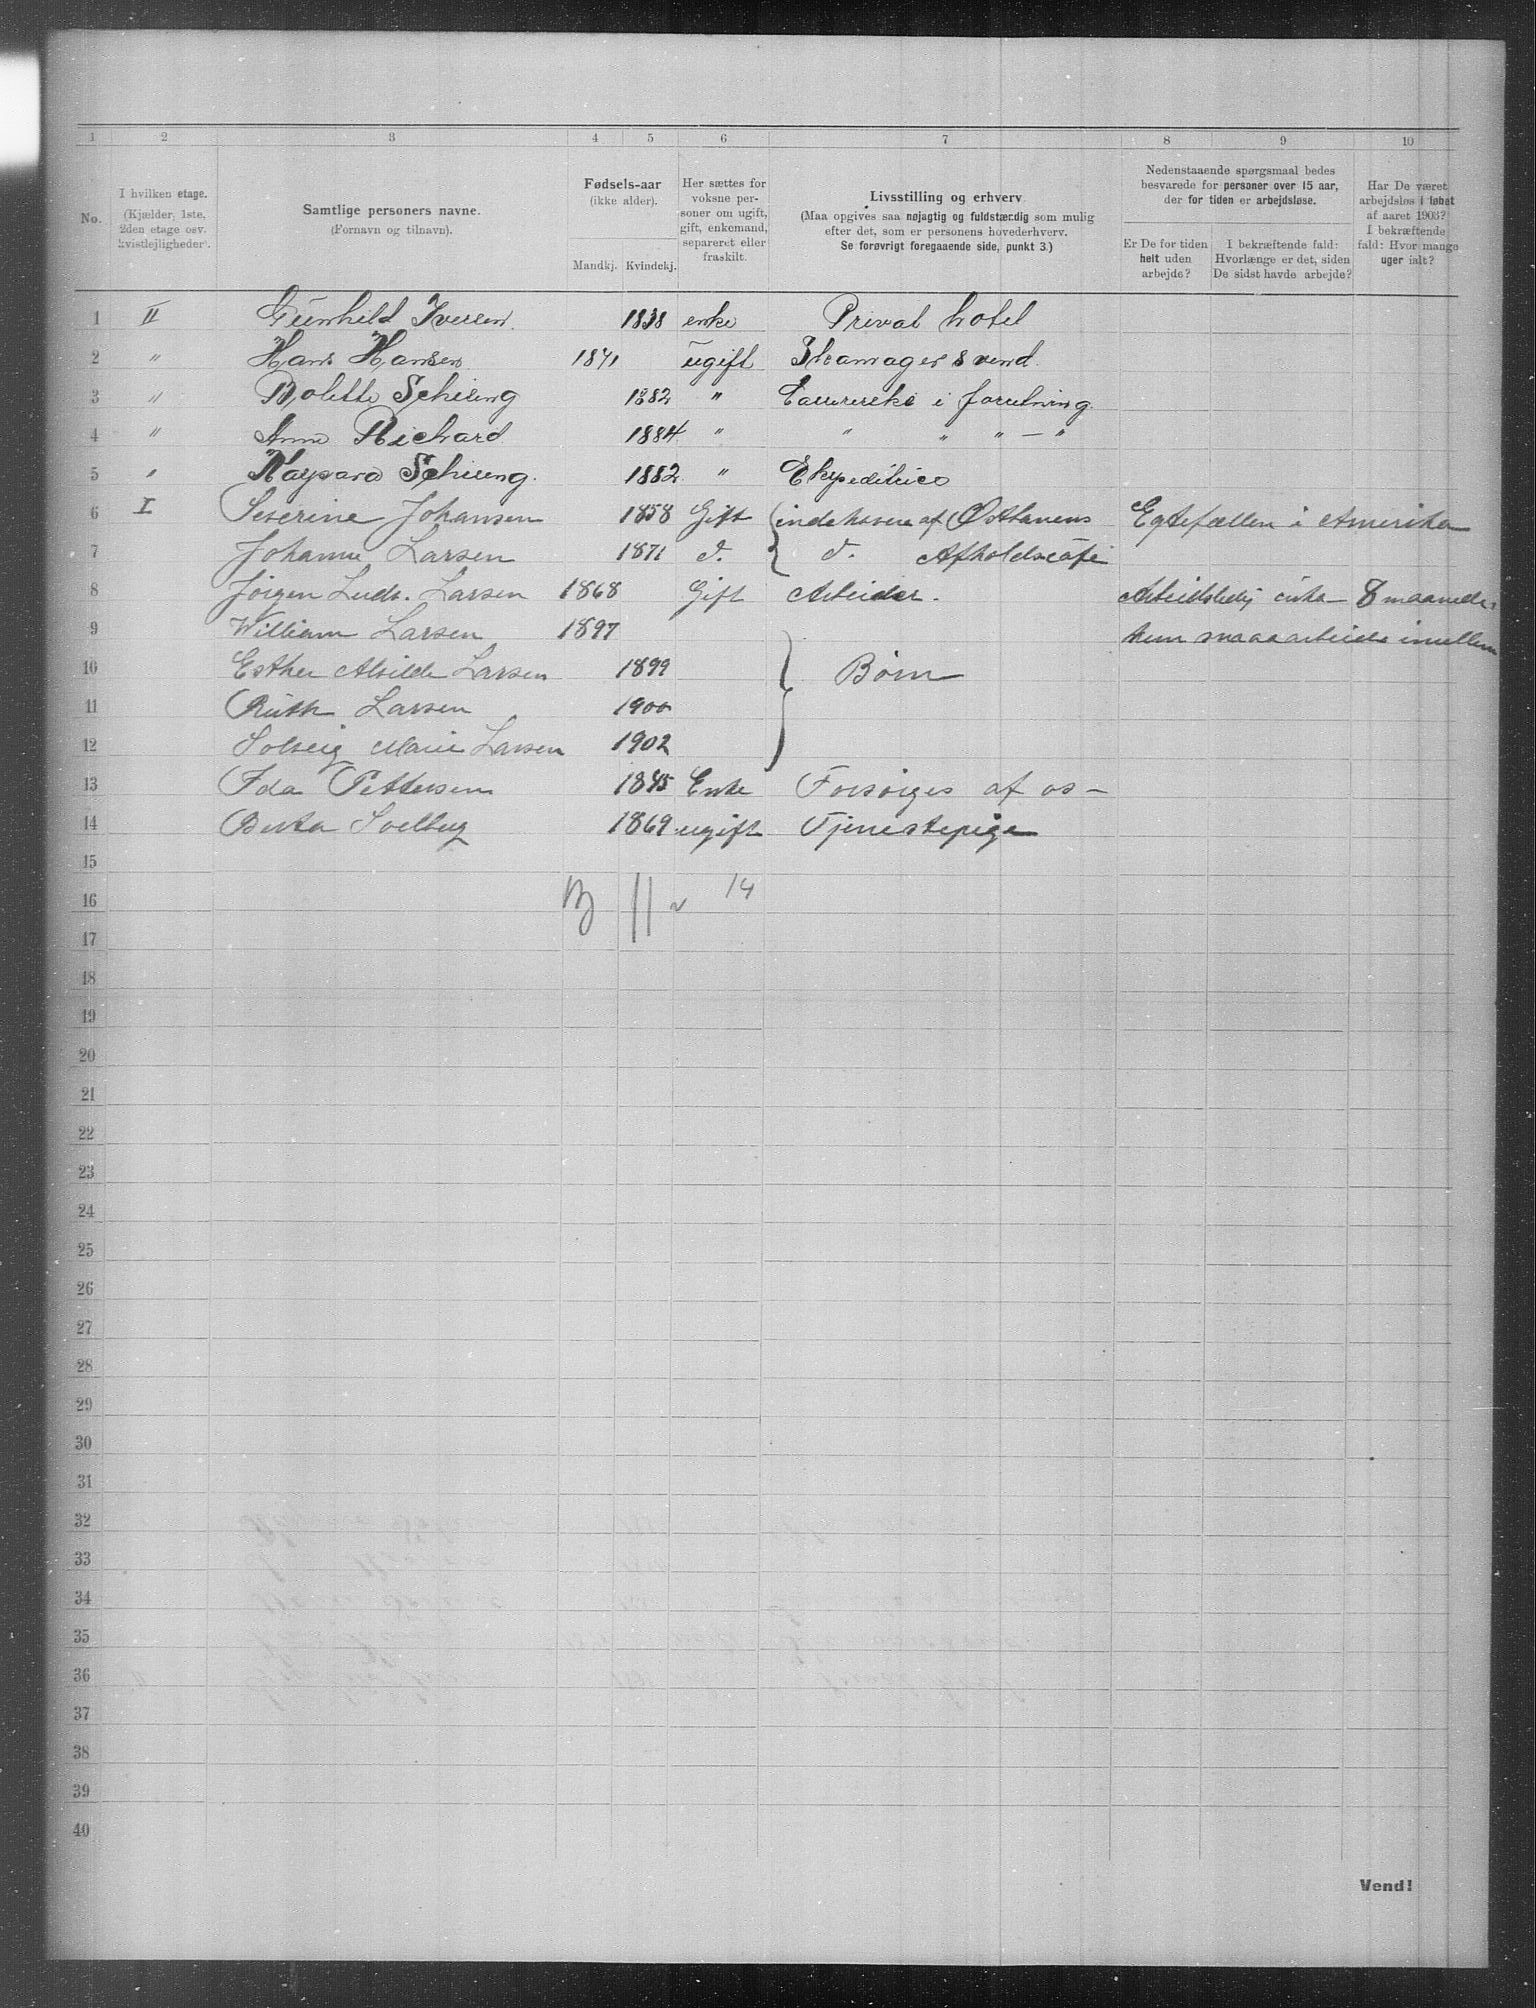 1 2 3 4 5 6 7 8 9 10
No.
I hvilken etage.
(Kjælder, 1ste,
2den etage osv.
kvistlejligheder).
Samtlige personers navne.
(Fornavn og tilnavn).
Fødsels-aar
(ikke alder).
Mandkj. Kvindekj.
Her sættes for
voksne per-
soner om ugift,
gift, enkemand,
separeret eller
fraskilt.
Livsstilling og erhverv
(Maa opgives saa nøjagtig og fuldstændig som mulig
efter det, som er personens hovederhverv.
Se forøvrigt foregaaende side, punkt 3.)
Nedenstaaende spørgsmaal bedes
besvarede for personer over 15 aar,
der for tiden er arbejdsløse.
Er De for tiden
helt uden
arbejde?
I bekræftende fald:
Hvorlænge er det, siden
De sidst havde arbejde?
Har De været
arbejdsløs i løbet
af aaret 1903?
I bekræftende
fald: Hvor mange
uger ialt?
1 II Gunhild Iversen. 1838 enke Privat hotel
2 " Hans Hansen 1871 ugift Skomager svend.
3 " Bolette Schieng 1882 " i forretning.
4 " Anna Richard 1884 " " " " — "
5 " Schieng. 1882 " Ekspeditrice
6 I Severine Johansen 1858 Gift { indehavere af Østbanens Egtefællen i Amerika
7 Johanne Larsen 1871 d. { d. Afholdscafe
8 Jørgen Ludv. Larsen 1868 Gift Arbeider. Arbeidsledig cirka 8 maaneder
9 William Larsen 1897 kun smaaarbeide imellem
10 Esther Alvilde Larsen 1899 } Børn
11 Ruth Larsen 1900
12 Solveig Marie Larsen 1902
13 Ida Pettersen 1845 Enke Forsørges af os –
14 Berta Solberg 1869 ugift Tjenestepige
15
16 B || 14
17
18
19
20
21
22
23
24
25
26
27
28
29
30
31
32
33
34
35
36
37
38
39
40
Vend!